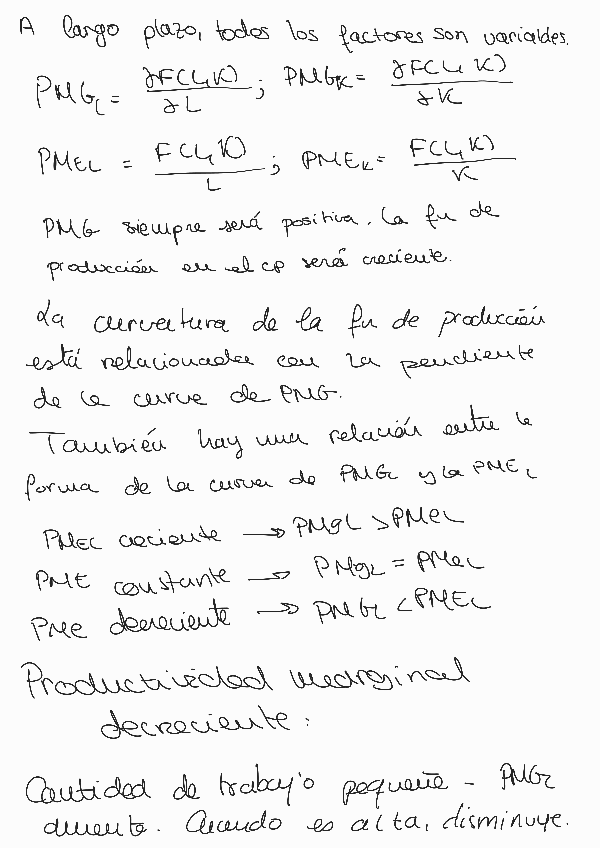 A largo plazo, todos los factores son variables.
PMG_L = ∂F(L,K)/∂L ; PMG_K = ∂F(L,K)/∂K
PME_L = F(L,K)/L ; PME_K = F(L,K)/K
PMG siempre será positiva. La fn de
producción en el cp será creciente.
La curvatura de la fn de producción
está relacionada con la pendiente
de la curva de PMG.
También hay una relación entre la
forma de la curva de PMG_L y la PME_L
PME_L creciente → PMg_L > PMe_L
PME constante → PMg_L = PMe_L
PMe decreciente → PMG_L < PME_L
Productividad marginal
decreciente:
Cantidad de trabajo pequeña - PMG_L
aumenta. Cuando es alta, disminuye.